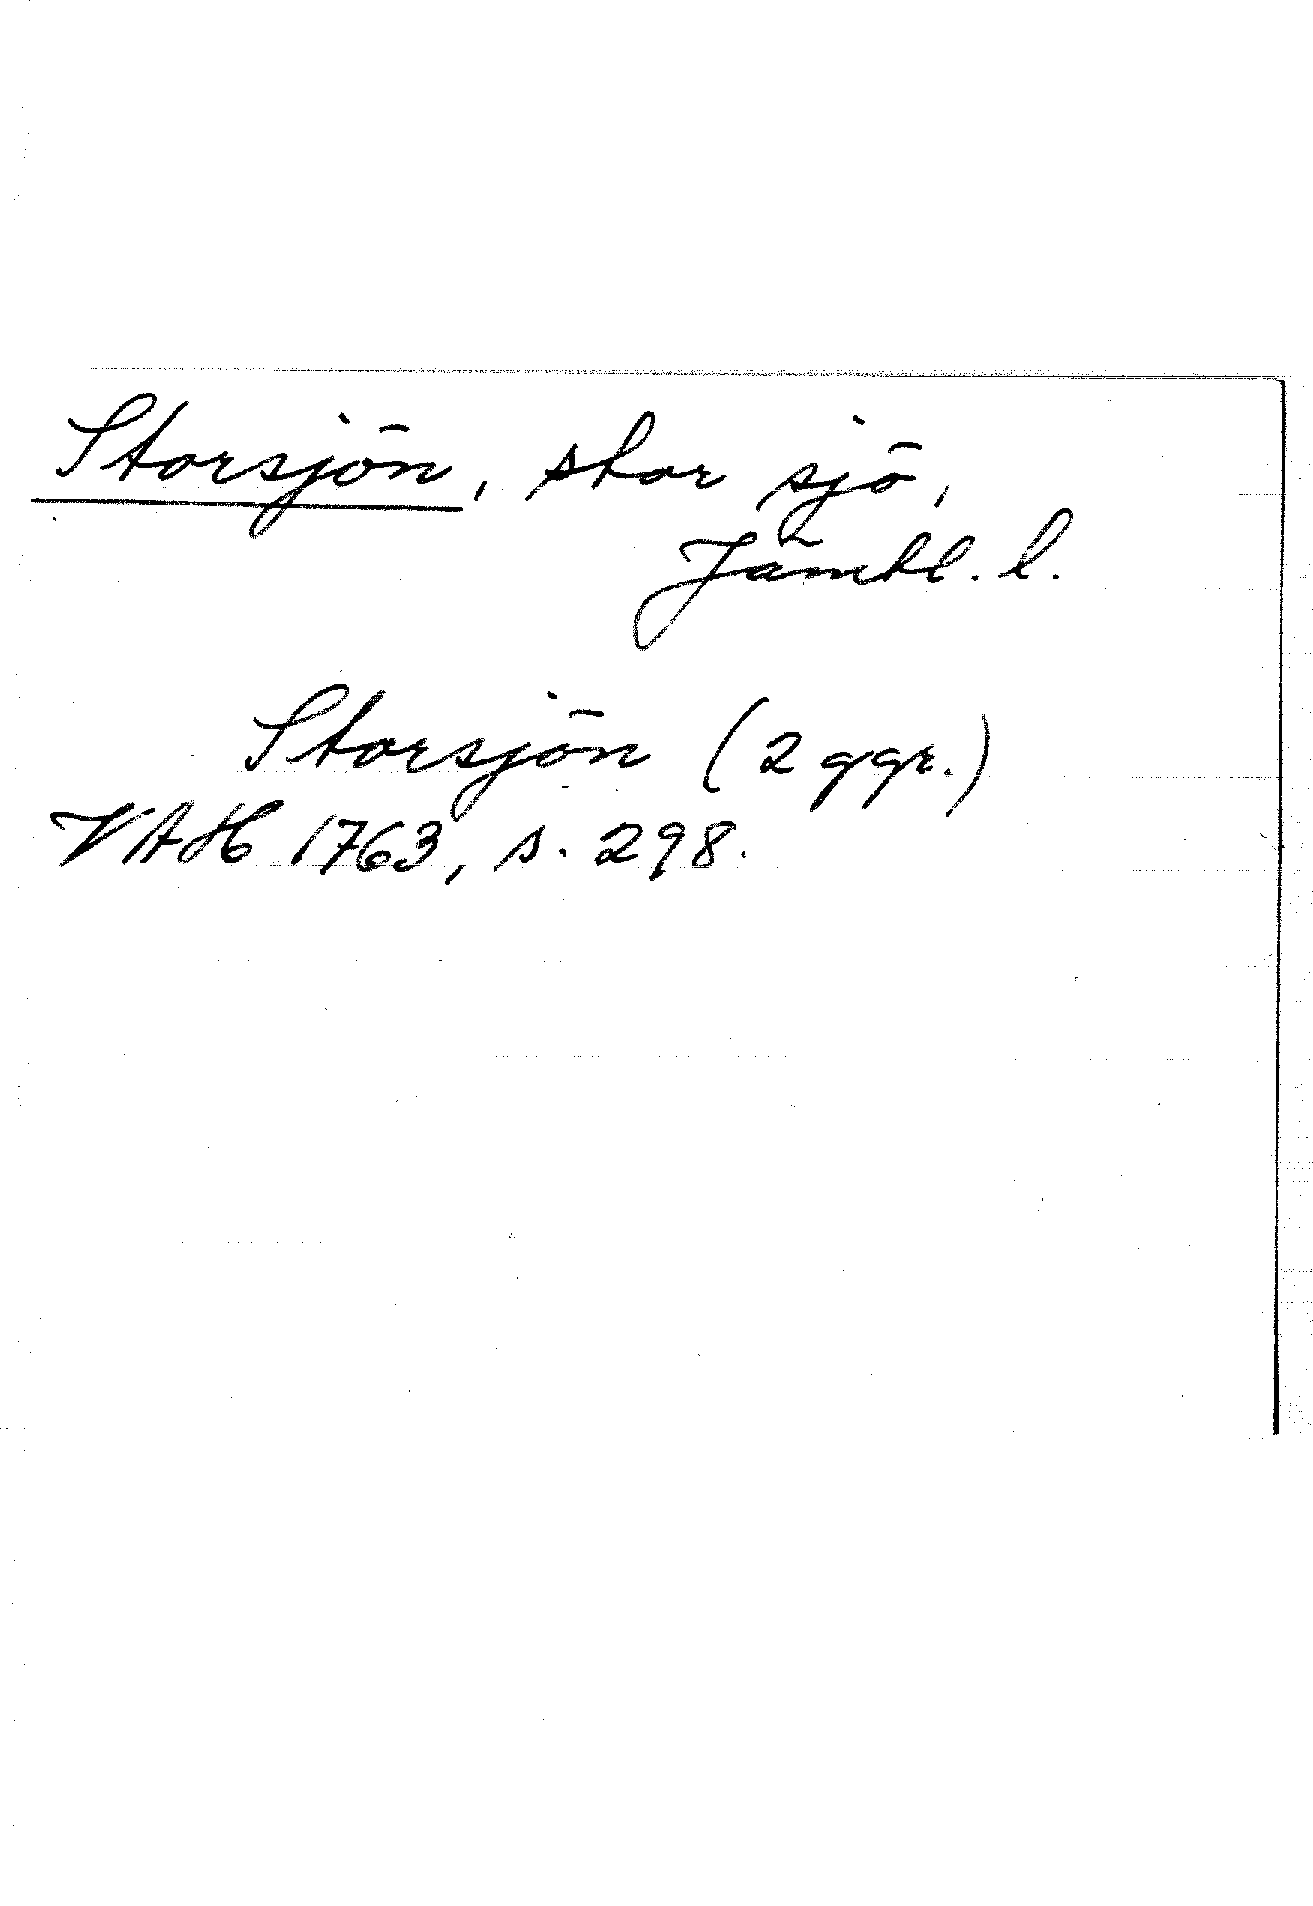 Storsjön, stor sjö,
Jämtl. l.
Storsjön (2 ggr.)
VAH 1763, s. 298.